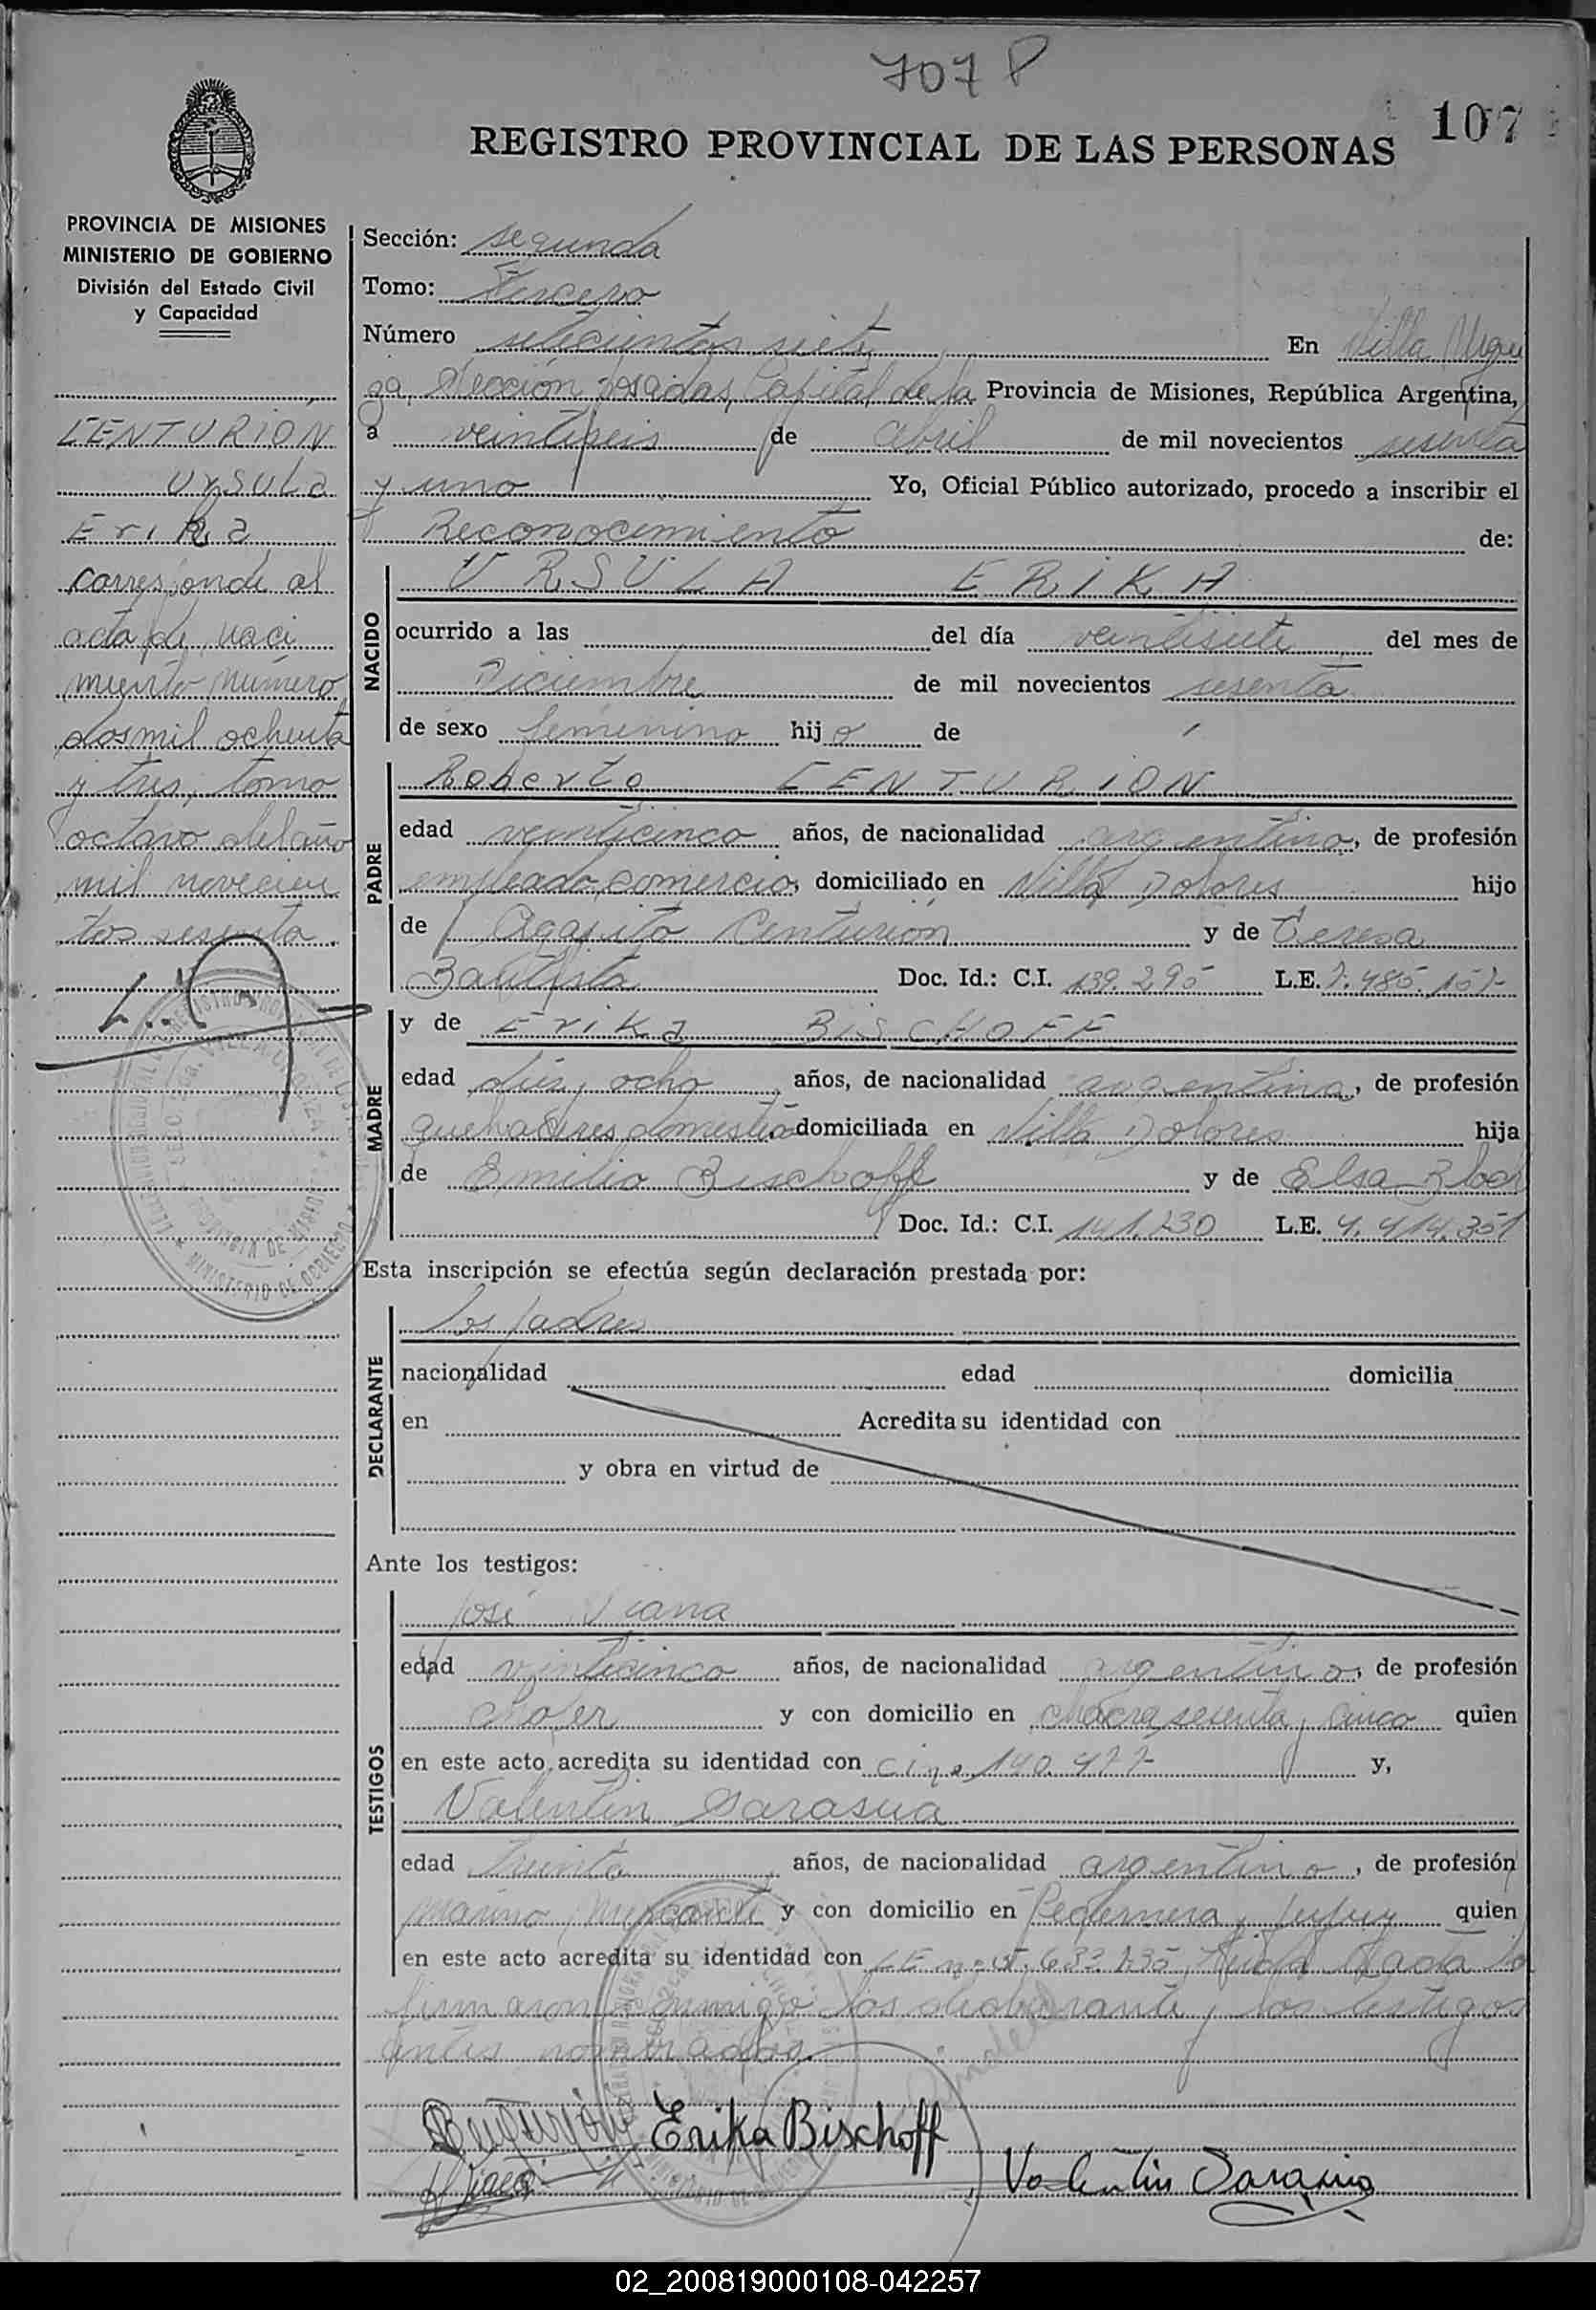 707 P
107
REGISTRO PROVINCIAL DE LAS PERSONAS
PROVINCIA DE MISIONES
MINISTERIO DE GOBIERNO
División del Estado Civil
y Capacidad
CENTURIÓN
Ursula
Erika
corresponde al
acta de naci
miento número
dos mil ochenta
y tres, tomo
octavo del año
mil novecien
tos sesenta.
Sección: segunda
Tomo: Tercero
Número setecientos siete En Villa Urqui
za, Sección Posadas, Capital de la Provincia de Misiones, República Argentina,
a veintiseis de abril de mil novecientos sesenta
y uno Yo, Oficial Público autorizado, procedo a inscribir el
Reconocimiento de:
NACIDO
URSULA ERIKA
ocurrido a las del día veintisiete del mes de
Diciembre de mil novecientos sesenta
de sexo femenino hijo de
PADRE
Roberto CENTURION
edad veinticinco años, de nacionalidad argentino, de profesión
empleado comercio, domiciliado en Villa Dolores hijo
de Agapito Centurión y de Teresa
Bautista Doc. Id.: C.I. 139.295 L.E. 7.485.157
MADRE
y de Erika BISCHOFF
edad dies y ocho años, de nacionalidad argentina, de profesión
quehaceres domestico domiciliada en Villa Dolores hija
de Emilio Bischoff y de Elsa Bloch
Doc. Id.: C.I. 141.230 L.E. 4.414.351
Esta inscripción se efectúa según declaración prestada por:
DECLARANTE
los padres
nacionalidad edad domicilia
en Acredita su identidad con
y obra en virtud de
Ante los testigos:
TESTIGOS
José Viana
edad veinticinco años, de nacionalidad argentino, de profesión
chofer y con domicilio en chacra sesenta y cinco quien
en este acto acredita su identidad con ci nº 140.477 y,
Valentin Sarasua
edad treinta años, de nacionalidad argentino, de profesión
marino mercante y con domicilio en Pedernera y Jujuy quien
en este acto acredita su identidad con LE nº 5.633.235, leida el acta la
firmaron conmigo los declarante y los testigos
antes nombrados.
Erika Bischoff
Valentin Sarasua
02_200819000108-042257